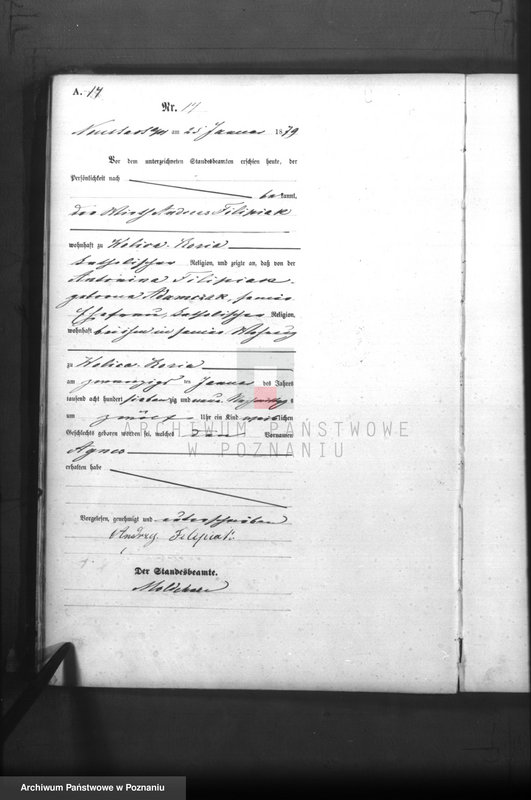 A. 17
Nr. 17
Neustadt am 25 Januar 1879
Vor dem unterzeichneten Standesbeamten erschien heute, der
Persönlichkeit nach
bekannt,
der Wirth Andreas Filipiak
wohnhaft zu
katholischer Religion, und zeigte an, daß von der
Antonina Filipiak
geborene Adamczak, seine
Ehefrau, katholischer Religion,
wohnhaft bei ihm in seiner Wohnung
zu
am zwanzigs ten Januar des Jahres
tausend acht hundert siebenzig und neun
um zwölf Uhr ein Kind weiblichen
Geschlechts geboren worden sei, welches den Vornamen
Agnes
erhalten habe
Vorgelesen, genehmigt und unterschrieben
Andrzej Filipiak
Der Standesbeamte.
ARCHIWUM PAŃSTWOWE
W POZNANIU
Archiwum Państwowe w Poznaniu